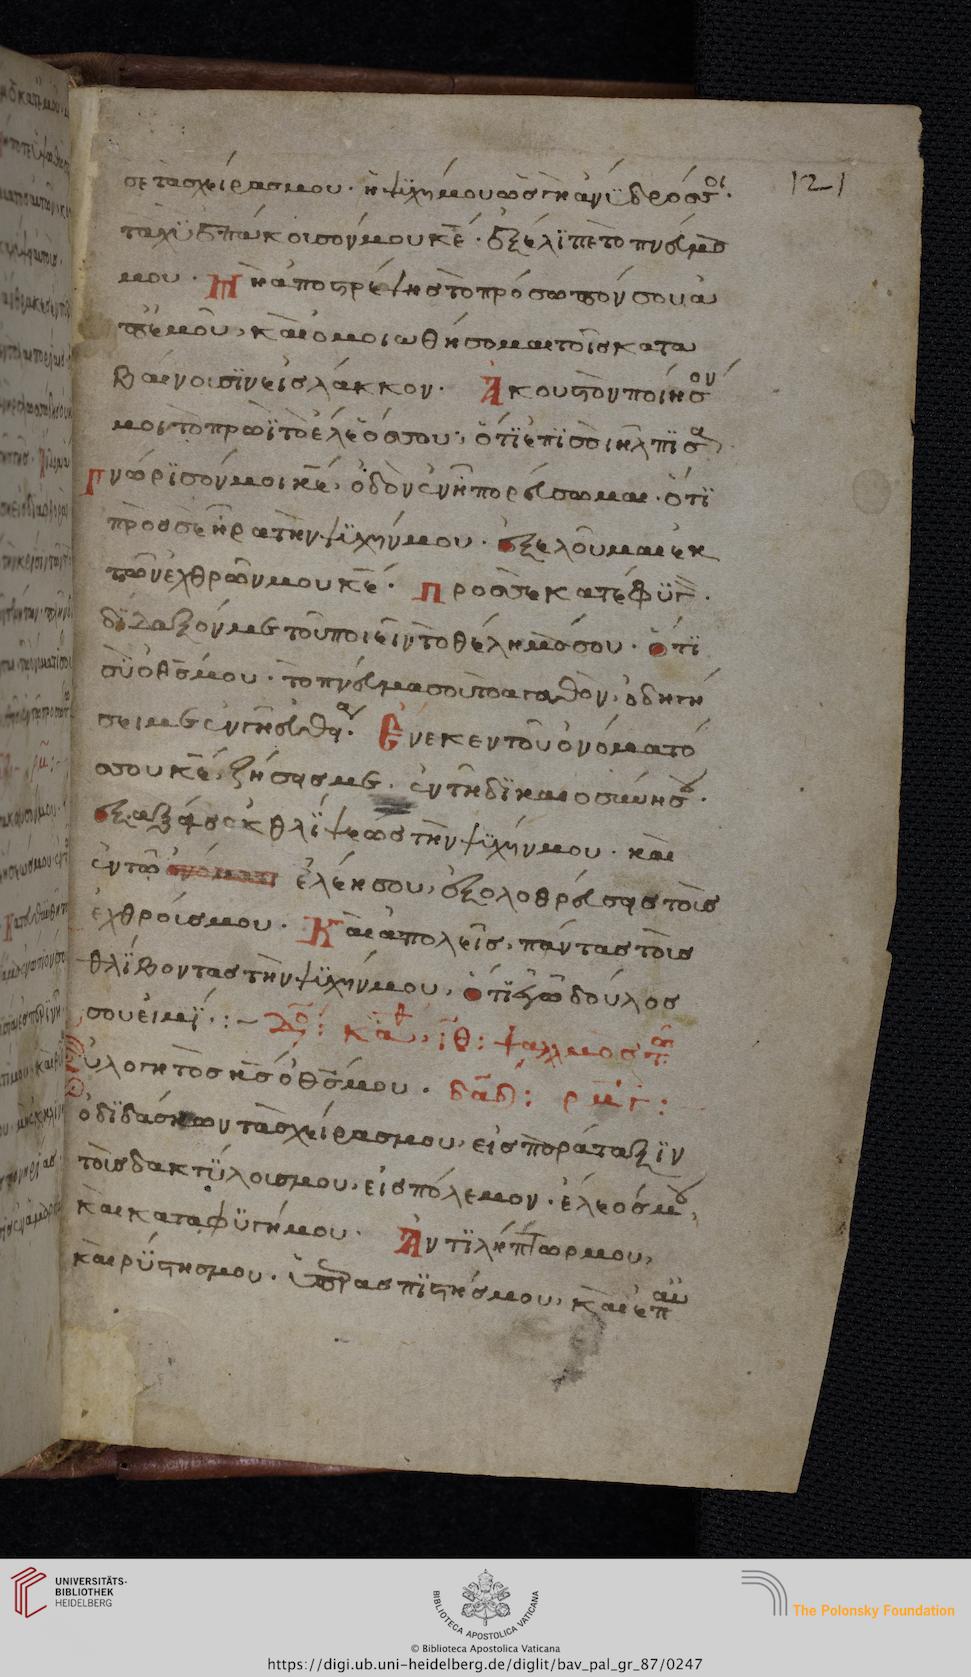 σε τὰς χείρας μου· ἡ ψϊχή μου ὡς γῆ ἀνϊδρός σοι·
121
ταχῢ ἐπάκοισόν μου κ̅ε̅· ἐξέλϊπε τὸ πνεῦμα
μου· Μὴ ἀποςρέψης τὸ πρόσωπόν σου ἀ
π' ἐμοῦ, καὶ ομοιωθήσομαι τοῖς κατα
βαίνοισϊν εἰς λάκκον· Ἀκουςον ποίησόν
μοι τὸ πρωῒ τὸ έλεός σου· ὅτϊ ἐπϊ σοὶ ἤλπϊσα,
Γνώρϊσόν μοι κ̅ε̅, ὁδὸν ἐν ἧ πορεύσωμαι· ὅτϊ
πρὸς σὲ ἦρα τὴν ψϊχήν μου· ἐξελοῦ μαι ἐκ
τῶν εχθρῶν μου κ̅ε̅· προς σε κατέφϋγ·
δΐδαξόν με τοῦ ποιεῖν τὸ θέλημά σου· ὅτϊ
σῢ ὁ θ̅ς̅ μου· τὸ πνεῦμα σου τὸ αγαθὸν, ὁδηγή
σει με ἐν γῆ εὐθεία· Ἕνεκεν τοῦ ὀνόματό
σσου κ̅ε̅, ζήσεις με· ἐν τῆ δϊκαιοσύνη σου·
ἐξάξεις ἐκ θλΐψεως τὴν ψϊχήν μου· καὶ
ἐν τῶ ὀνόματι ἐλέει σου, ἐξολοθρεύσεις τοὶς
ἐχθροίς μου· Καὶ ἀπολεῖς, πάντας τοὶς
θλΐβοντας τὴν ψϊχήν μου, ὅτϊ ἐγῶ δούλος
σου εἰμΐ·:~ ι̅θ̅: ψαλλμὸς τῶ
Εὐλογητὸς κ̅ς̅ ὁ θ̅ς̅ μου· δα̅δ̅: ρ̅μ̅γ̅:
ὁ δϊδάσκων τὰς χείρας μου, εἰς ποράταξϊν
τοὶς δακτΰλοις μου, εἰς πόλεμον· ἐλεός μου,
καὶ καταφϋγή μου· Ἀντϊλήπτωρ μου,
καὶ ρΰςης μου· ὑπερασπϊςής μου, καὶ ἐπ αυ
UNIVERSITÄTS-
BIBLIOTHEK
HEIDELBERG
BIBLIOTECA APOSTOLICA VATICANA
The Polonsky Foundation
© Biblioteca Apostolica Vaticana
https://digi.ub.uni-heidelberg.de/diglit/bav_pal_gr_87/0247